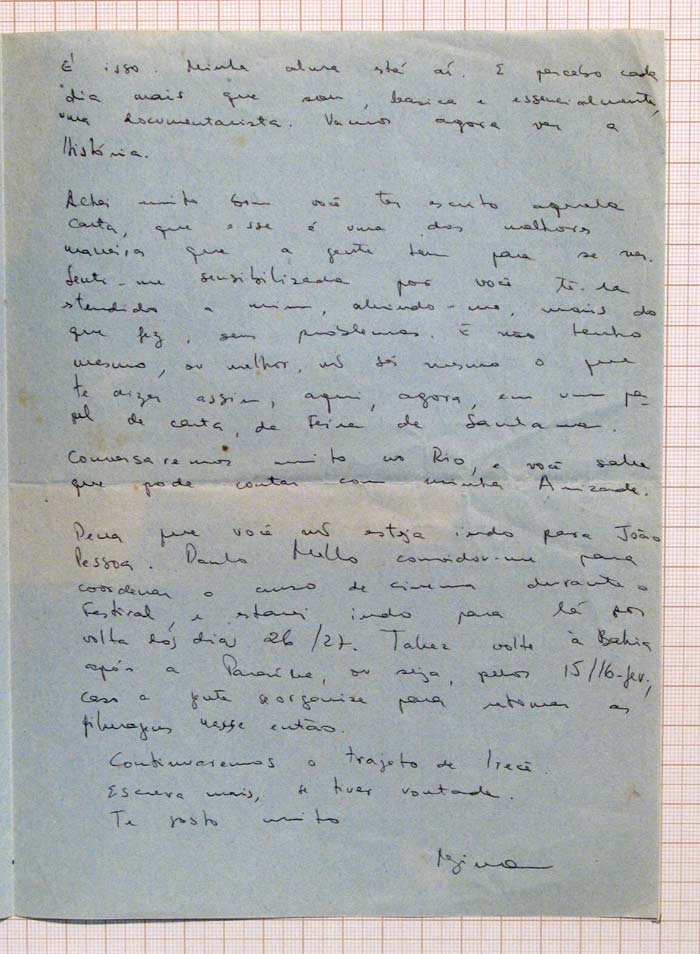 É isso. Minha alma está aí. E percebo cada
dia mais que sou, basica e essencialmente,
uma documentarista. Vamos agora ver a
História.
Achei muito bom você ter escrito aquela
carta, que esse é uma das melhores
maneiras que a gente tem para se ver.
Senti-me sensibilizada por você tê-la
stendido a mim, abrindo-me, mais do
que fez, sem problemas. E não tenho
mesmo, ou melhor, nõ sei mesmo o que
te dizer assim, aqui, agora, em um pa-
pel de carta, de Feira de Santana.
Conversaremos muito no Rio, e você sabe
que pode contar com minha Amizade.
Pena que você nõ esteja indo para João
Pessoa. Paulo Mello convidou-me para
coordenar o curso de cinema durante o
Festival, e estarei indo para lá por
volta dos dias 26/27. Talvez volte à Bahia
após a Paraíba, ou seja, pelos 15/16-fev.,
caso a gente se organize para retomar as
filmagens nesse então.
Continuaremos o trajeto de Irecê.
Escreva mais, se tiver vontade.
Te gosto muito